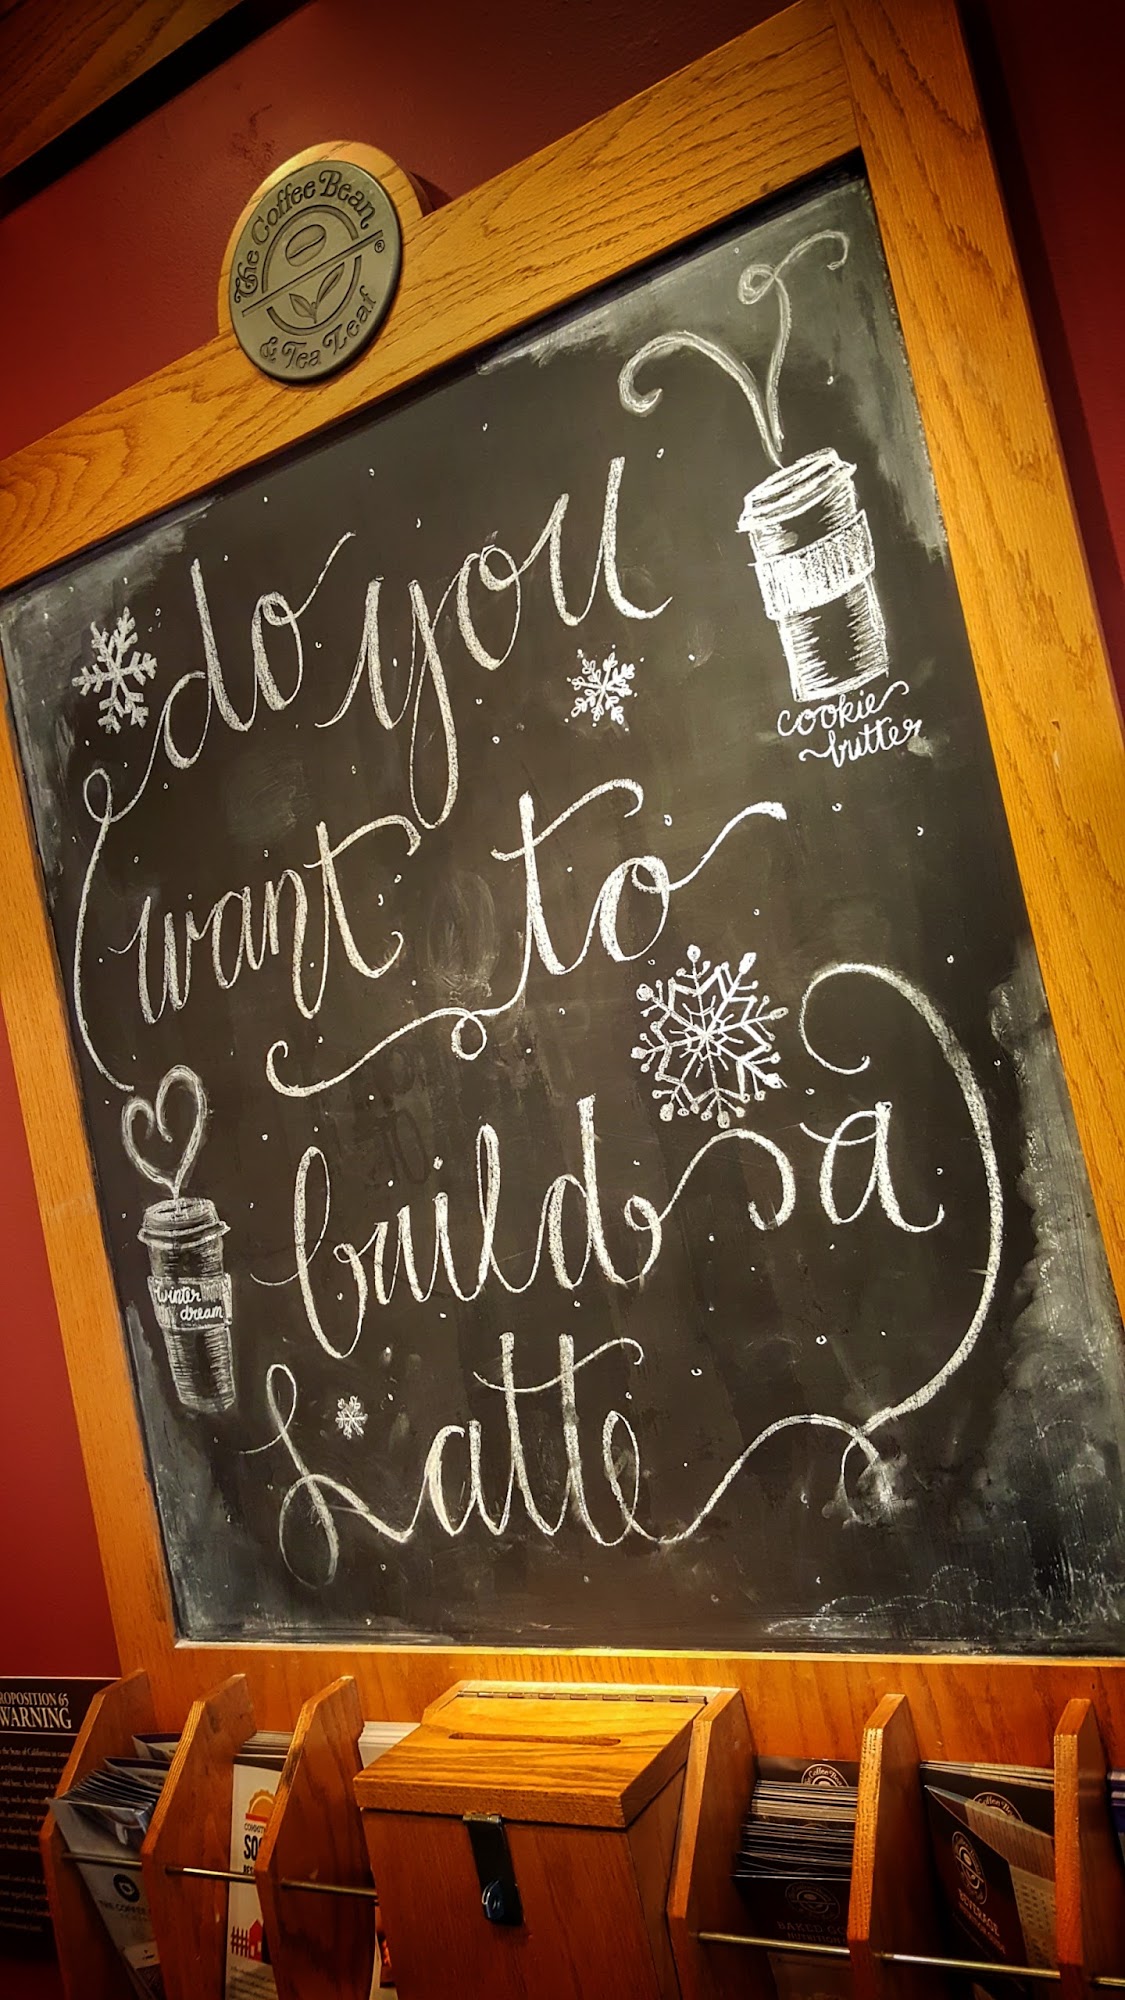 The Coffee Bean
& Tea Leaf
®
do you
want to
build a
Latte
cookie
butter
winter
dream
PROPOSITION 65
WARNING
THE COFFEE
BAKED
BEVERAGE